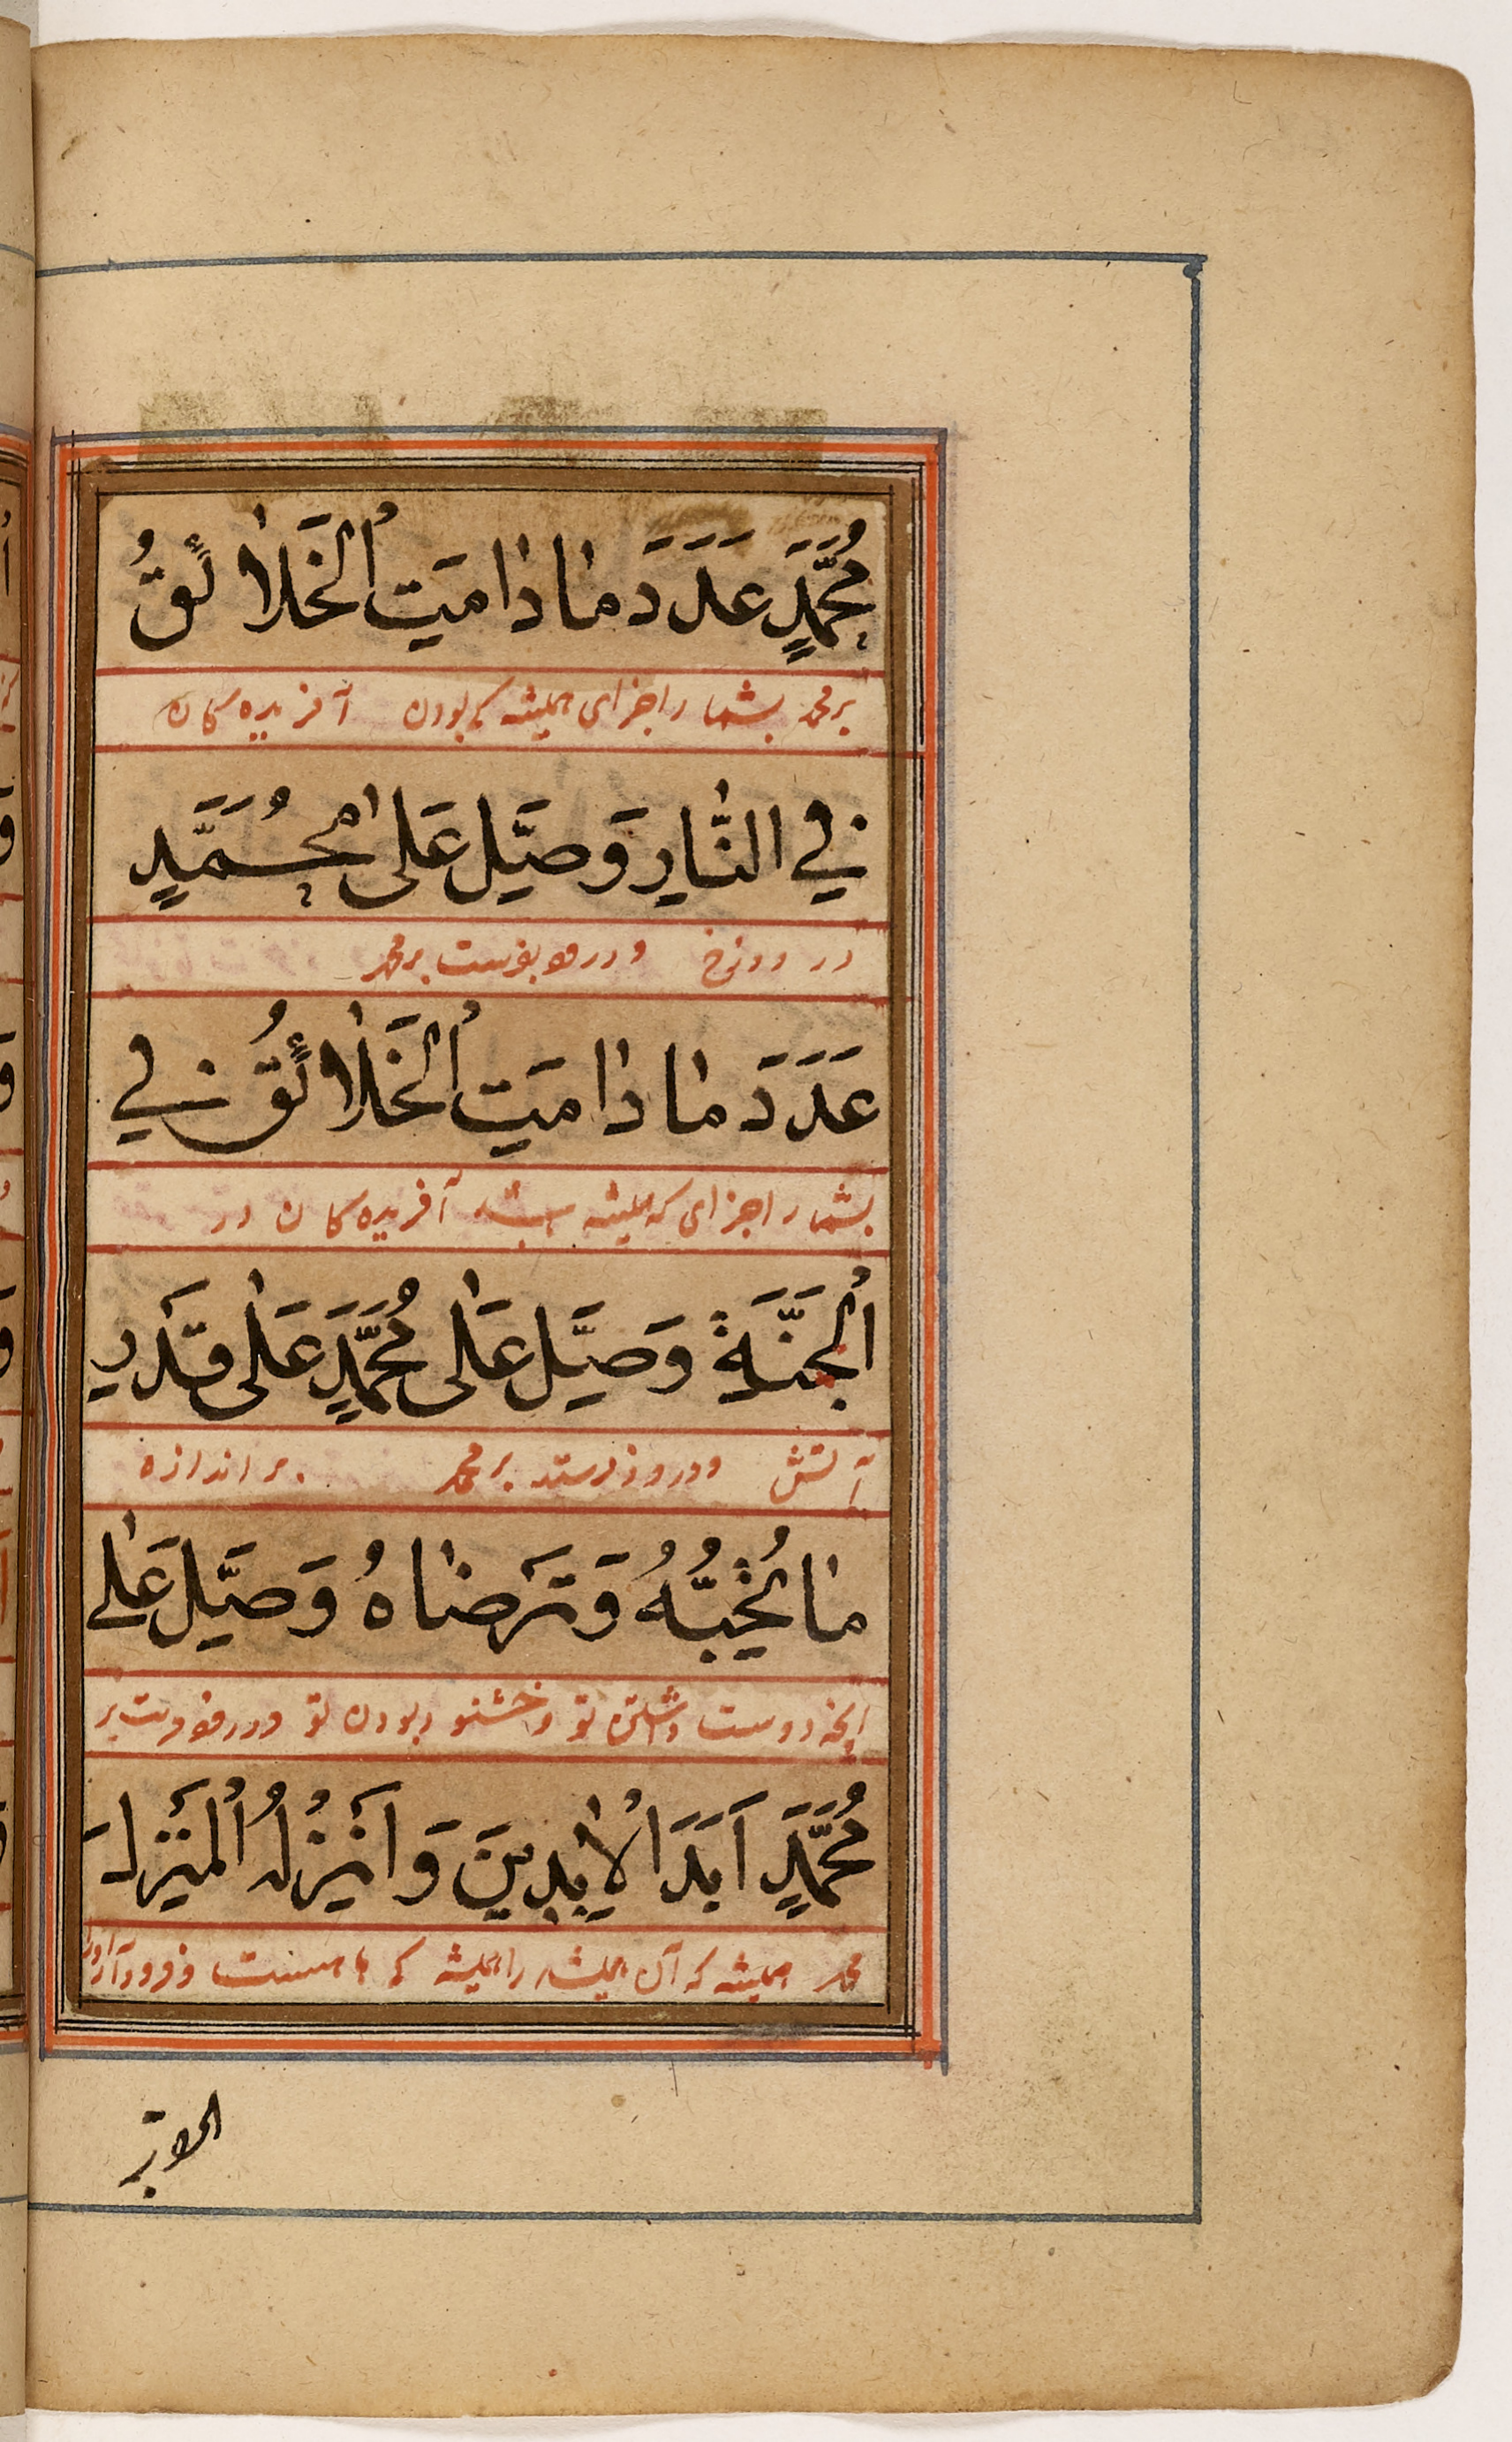 مُحَمَّدٍ عَدَدَ مَا دَامَتِ الْخَلَائِقُ
بر محمد بشمار اجزای همیشه که بودن آفریده کان
فِي النَّارِ وَصَلِّ عَلَى مُحَمَّدٍ
در دوزخ و درود بفرست بر محمد
عَدَدَ مَا دَامَتِ الْخَلَائِقُ فِي
بشمار اجزای که همیشه آفریده کان در
الْجَنَّةِ وَصَلِّ عَلَى مُحَمَّدٍ عَلَى قَدْرِ
آتش و درود فرستد بر محمد بر اندازه
مَا تُحِبُّهُ وَتَرْضَاهُ وَصَلِّ عَلَى
آنچه دوست داشتن تو و خشنود بودن تو و درود فرست بر
مُحَمَّدٍ أَبَدَ الْآبِدِينَ وَأَنْزِلْهُ الْمُنْزَلَ
محمد همیشه که آن همیشه را همیشه که و فرود آر او را